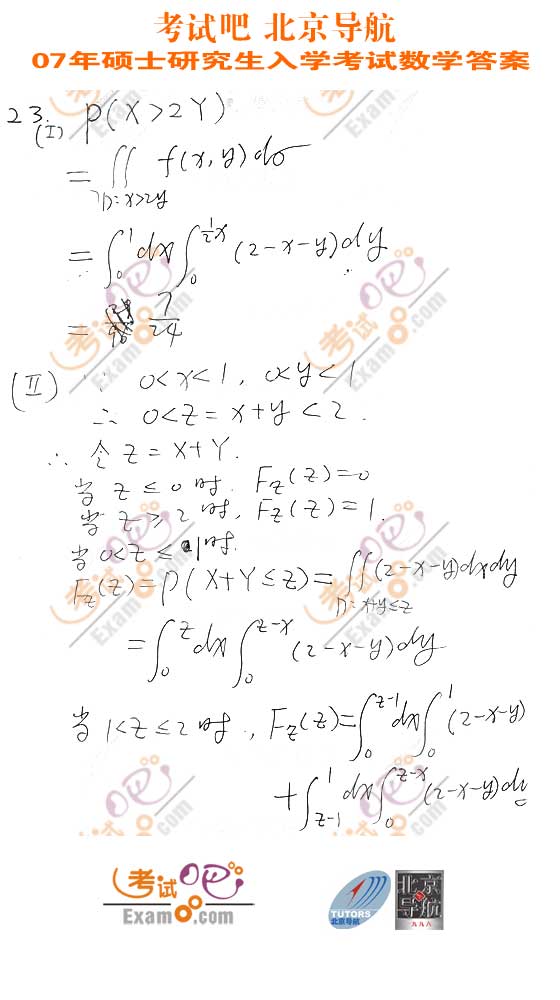 考试吧 北京导航
07年硕士研究生入学考试数学答案
23.
(I) P(X>2Y)
= ∬ f(x,y)dσ
D: x>2y
= ∫₀¹dx∫₀^{½x}(2-x-y)dy
= 7/24
(II) ∵ 0<x<1, 0<y<1
∴ 0<z=x+y<2.
∴ 令 z=X+Y.
当 z≤0时, F_Z(z)=0
当 z≥2时, F_Z(z)=1.
当 0<z≤1时,
F_Z(z)=P(X+Y≤z)=∬(2-x-y)dxdy
D: x+y≤z
=∫₀^z dx∫₀^{z-x}(2-x-y)dy
当 1<z≤2时, F_Z(z)=∫₀^{z-1}dx∫₀¹(2-x-y)
+∫_{z-1}^1 dx∫₀^{z-x}(2-x-y)dy
考试吧
Exam8.com
TUTORS
北京导航
北京
导航
九九八